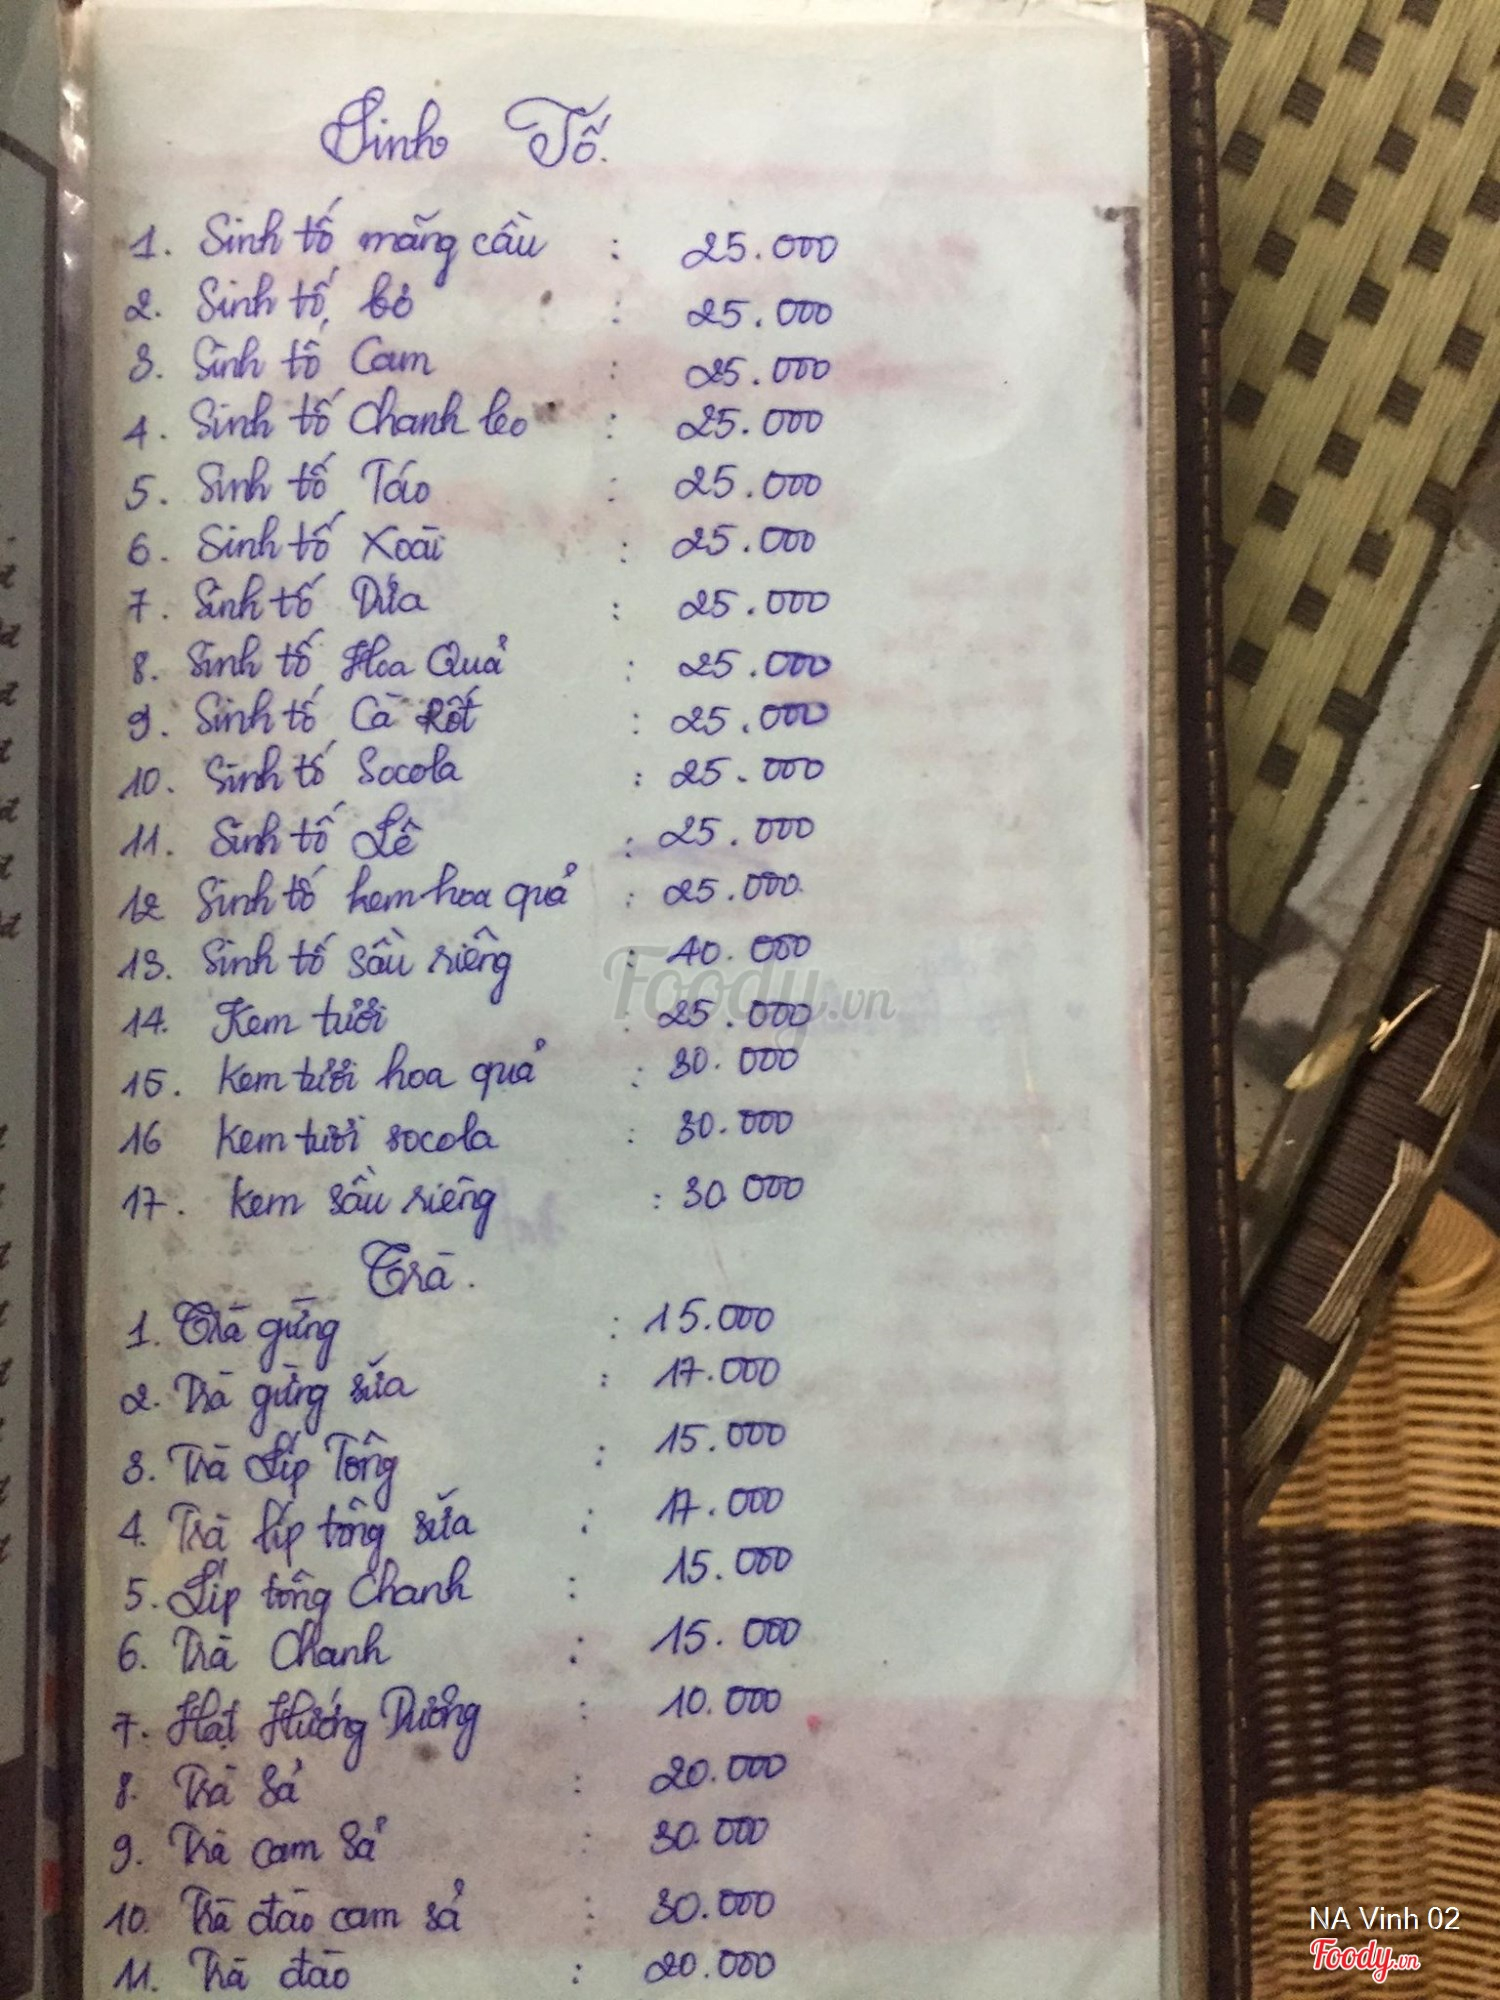 Sinh Tố.
1. Sinh tố mãng cầu : 25.000
2. Sinh tố bơ : 25.000
3. Sinh tố Cam : 25.000
4. Sinh tố Chanh leo : 25.000
5. Sinh tố Táo : 25.000
6. Sinh tố Xoài : 25.000
7. Sinh tố Dứa : 25.000
8. Sinh tố Hoa Quả : 25.000
9. Sinh tố Cà Rốt : 25.000
10. Sinh tố Socola : 25.000
11. Sinh tố Lê : 25.000
12 Sinh tố kem hoa quả : 25.000
13. Sinh tố sầu riêng : 40.000
14. Kem tươi : 25.000
15. Kem tươi hoa quả : 30.000
16 Kem tươi socola : 30.000
17. Kem sầu riêng : 30.000
Trà.
1. Trà gừng : 15.000
2. Trà gừng sữa : 17.000
3. Trà Líp Tông : 15.000
4. Trà líp tông sữa : 17.000
5. Líp tông Chanh : 15.000
6. Trà Chanh : 15.000
7. Hạt Hướng Dương : 10.000
8. Trà Sả : 20.000
9. Trà cam Sả : 30.000
10. Trà đào cam sả : 30.000
11. Trà đào : 20.000
Foody.vn
NA Vinh 02
Foody.vn